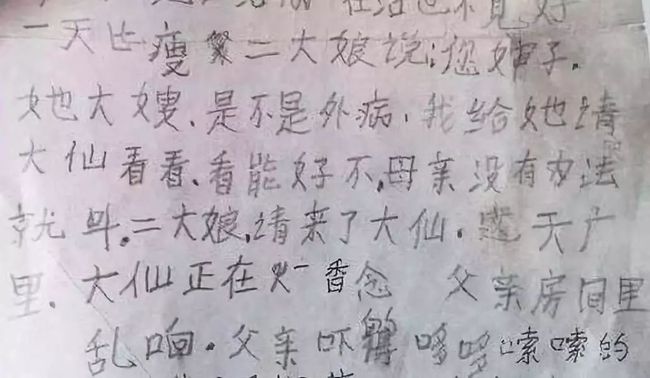 在治也不见好
一天比瘦 二大娘说:您婶子.
她大嫂.是不是外病.我给她请
大仙看看.看能好不.母亲没有办法
就叫.二大娘.请来了大仙. 天广
里.大仙正在火一香念 父亲房间里
乱响.父亲吓得哆哆嗦嗦的